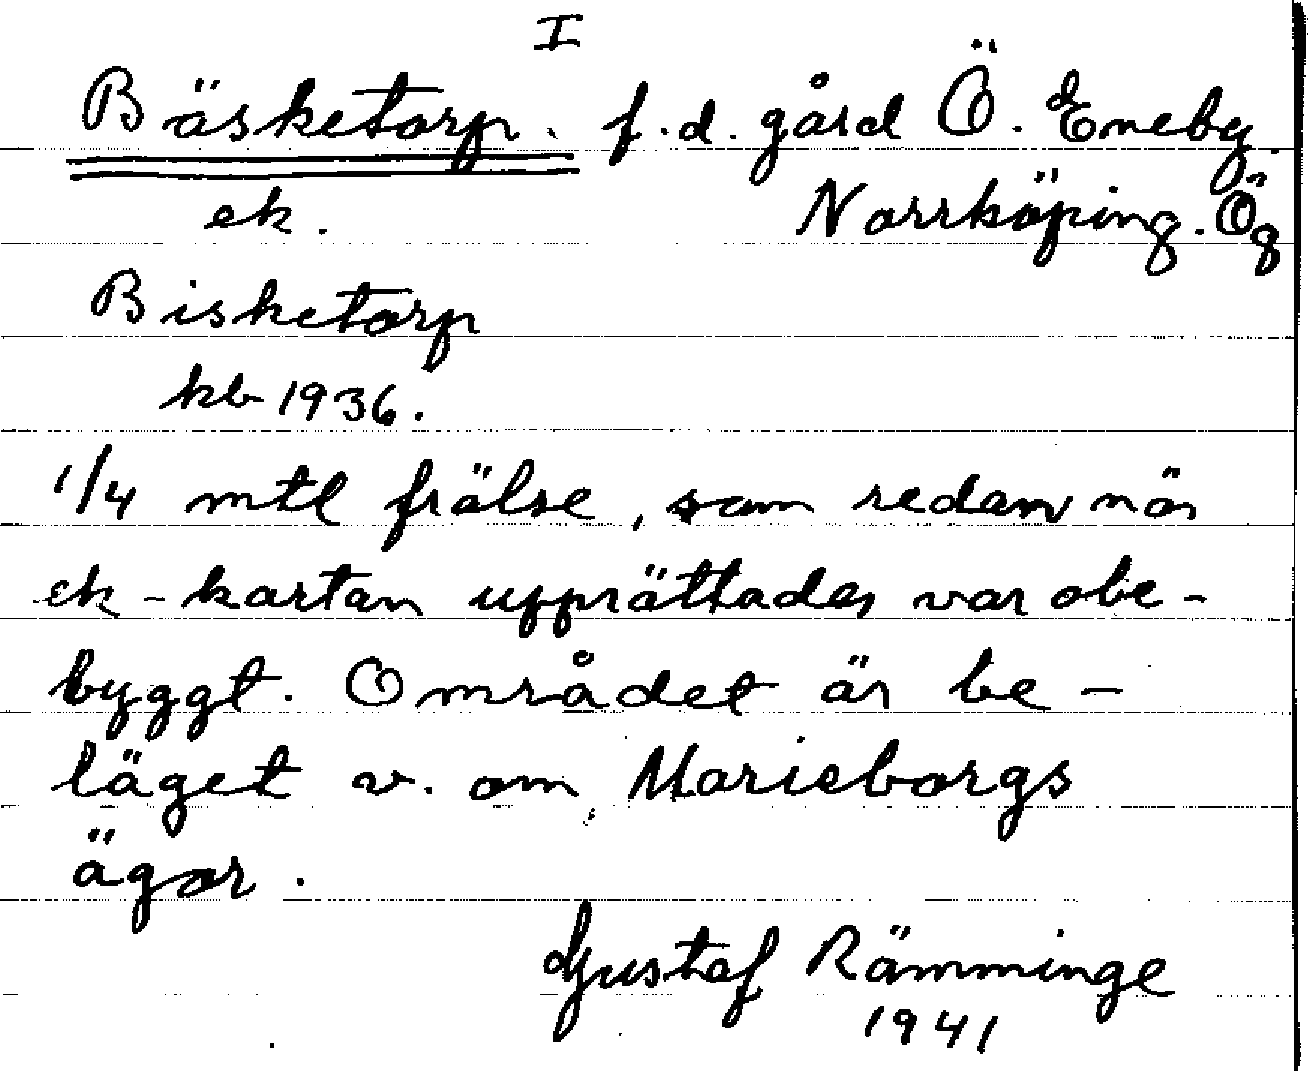 I
Bäsketorp. f.d. gård Ö. Eneby
ek. Norrköping. Ög
Bisketorp
kb 1936.
1/4 mtl frälse, som redan när
ek-kartan upprättades var obe-
byggt. Området är be-
läget v. om Marieborgs
ägor.
Gustaf Rämminge
1941